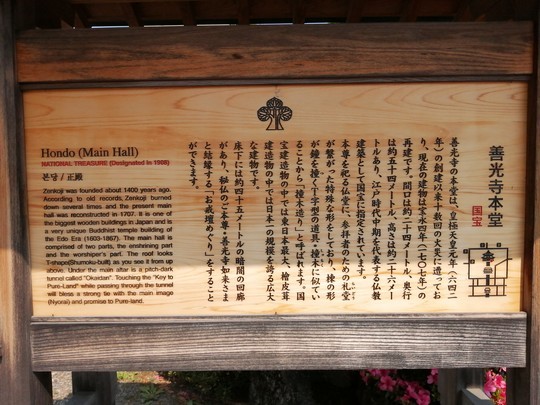 善光寺本堂
国宝
善光寺の本堂は、皇極天皇元年（六四二
年）の創建以来十数回の火災に遭ってお
り、現在の建物は宝永四年（一七〇七年）の
再建です。間口は約二十四メートル、奥行
は約五十四メートル、高さは約二十六メー
トルあり、江戸時代中期を代表する仏教
建築として国宝に指定されています。
本尊を祀る仏堂に、参拝者のための礼堂
が繋がった特殊な形をしており、棟の形
が鐘を撞く丁字型の道具・撞木に似てい
ることから「撞木造り」と呼ばれます。国
宝建造物の中では東日本最大、檜皮葺
建造物の中では日本一の規模を誇る広大
な建物です。
床下には約四十五メートルの暗闇の回廊
があり、秘仏のご本尊・善光寺如来さま
と結縁する「お戒壇めぐり」をすること
ができます。
Hondo (Main Hall)
NATIONAL TREASURE (Designated in 1953)
본당 / 正殿
Zenkoji was founded about 1400 years ago.
According to old records, Zenkoji burned
down several times and the present main
hall was reconstructed in 1707. It is one of
the biggest wooden buildings in Japan and is
a very unique Buddhist temple building of
the Edo Era (1603-1867). The main hall is
comprised of two parts, the enshrining part
and the worshiper's part. The roof looks
T-shape(Shumoku-built) as you see it from up
above. Under the main altar is a pitch-dark
tunnel called "Okaidan". Touching the "Key to
Pure-Land" while passing through the tunnel
will bless a strong tie with the main image
(Nyorai) and promise to Pure-land.